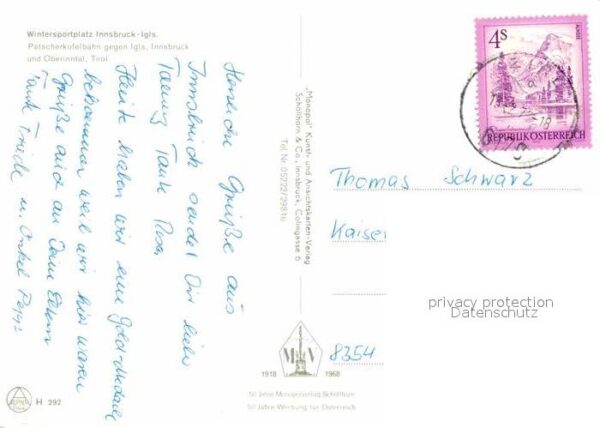 Wintersportplatz Innsbruck-Igls.
Patscherkofelbahn gegen Igls, Innsbruck
und Oberinntal, Tirol
Herzliche Grüße aus
Innsbruck sendet Dir lieber
Tommy Tante Resi
Heute haben wir eine Gold-Medaille
bekommen weil wir hier waren
Grüße auch an Deine Eltern
Tante Friede u. Onkel
„Monopol" Kunst- und Ansichtskarten-Verlag
Schöllhorn & Co., Innsbruck, Colingasse 6
Tel. Nr. 05222/29816
4s
REPUBLIK ÖSTERREICH
Thomas Schwarz
Kaiser
privacy protection
Datenschutz
8354
1918
1968
50 Jahre Monopolverlag Schöllhorn
50 Jahre Werbung für Österreich
H 292